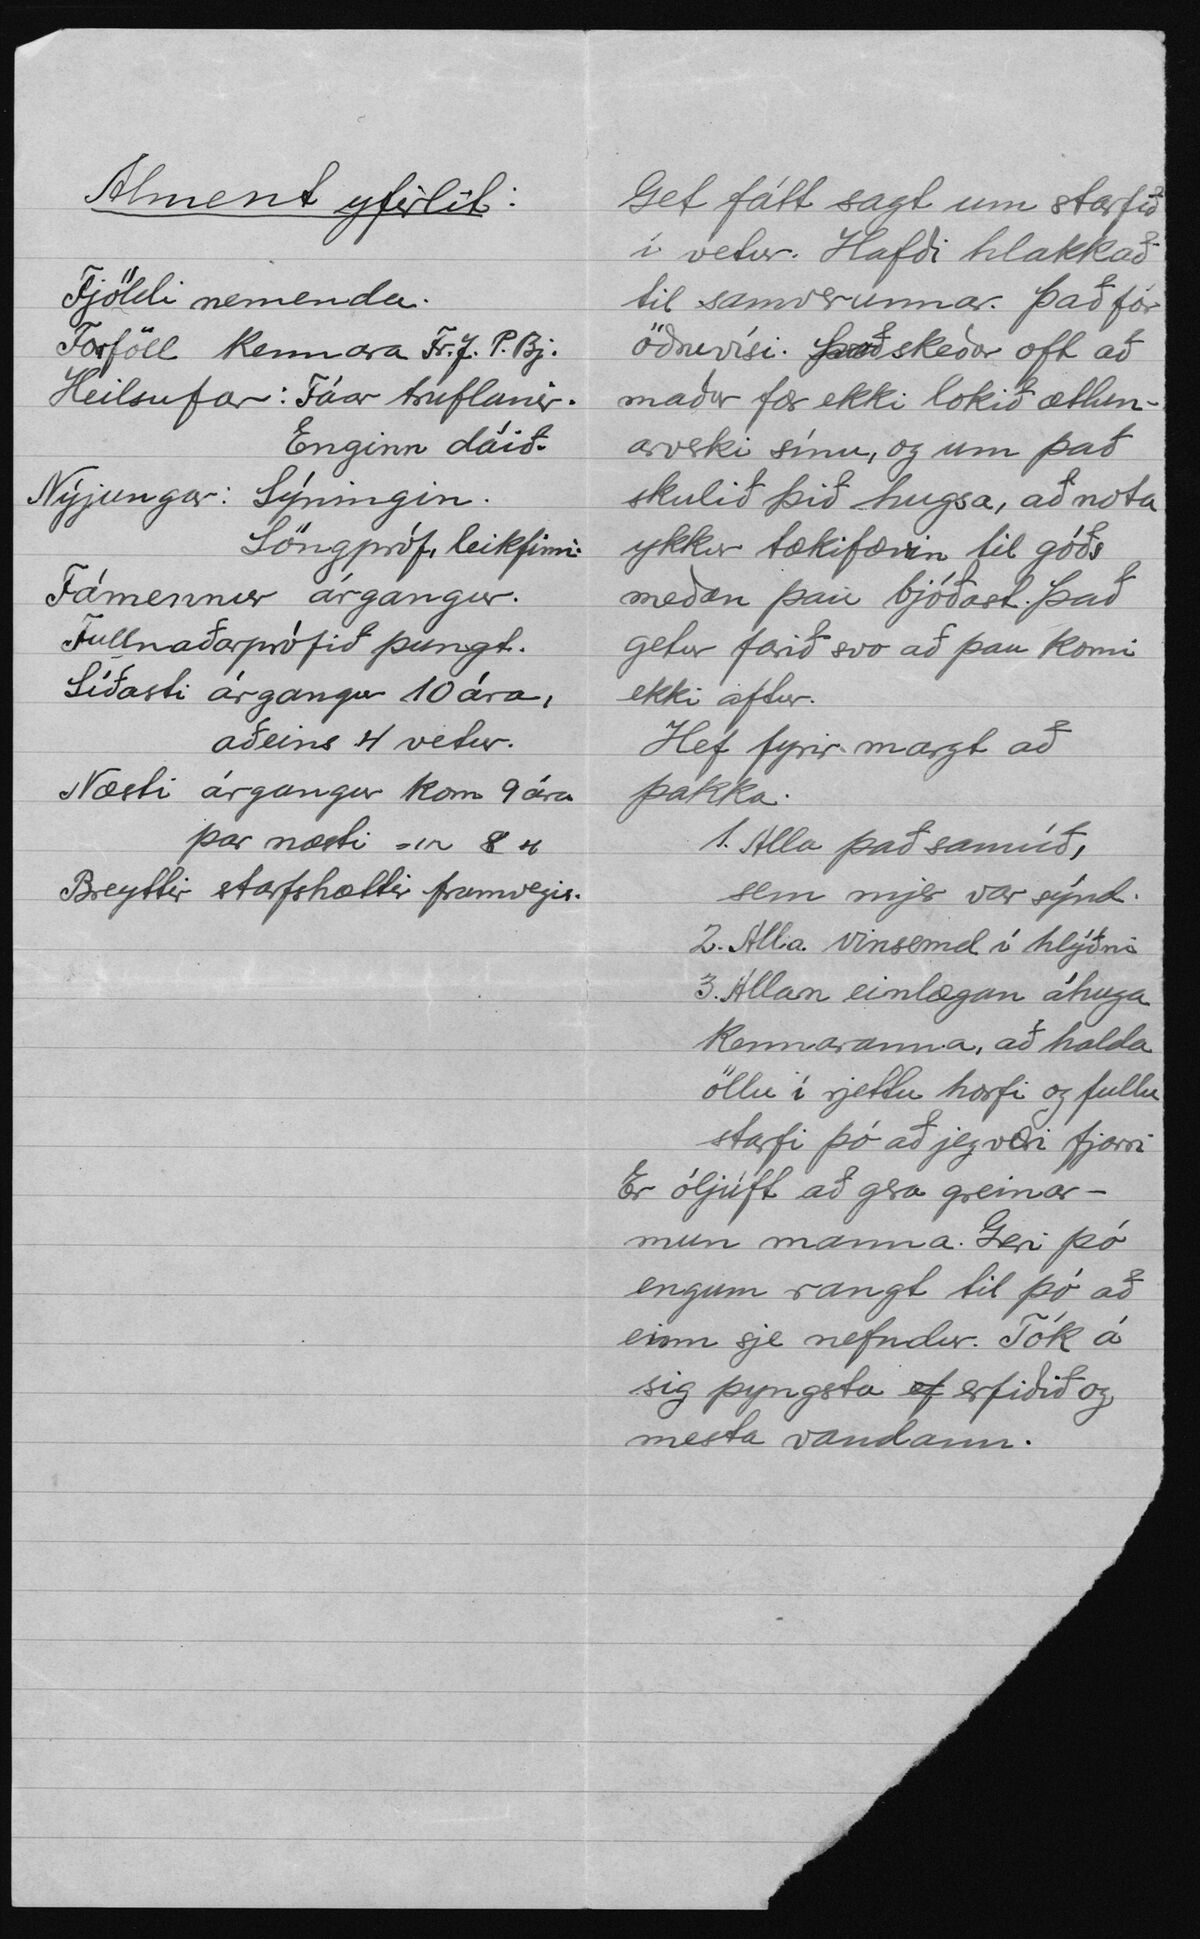 Alment yfirlit:
Fjöldi nemenda.
Forföll kennara Fr. J. P. Bj.
Heilsufar: Fáar truflanir.
Enginn dáið.
Nýjungar: Sýningin.
Söngpróf, leikfimi.
Fámennur árgangur.
Fullnaðarprófið þungt.
Síðasti árgangur 10 ára,
aðeins 4 vetur.
Næsti árgangur kom 9 ára
þar næsti -"- 8 "
Breyttir starfshættir framvegis.
Get fátt sagt um starfið
í vetur. Hafði hlakkað
til samverunnar. Það fór
öðruvísi. Það skeður oft að
maður fær ekki lokið ætlun-
arverki sínu, og um það
skulið þið hugsa, að nota
ykkur tækifærin til góðs
meðan þau bjóðast. Það
getur farið svo að þau komi
ekki aftur.
Hef fyrir margt að
þakka.
1. Alla það samúð,
sem mjer var sýnd.
2. Alla vinsemd í hlýðni
3. Allan einlægan áhuga
kennaranna, að halda
öllu í rjettu horfi og fullu
starfi þó að jeg væri fjarri
Er óljúft að gera greinar-
mun manna. Geri þó
engum rangt til þó að
einn sje nefndur. Tók á
sig þyngsta ef erfiðið og
mesta vandann.